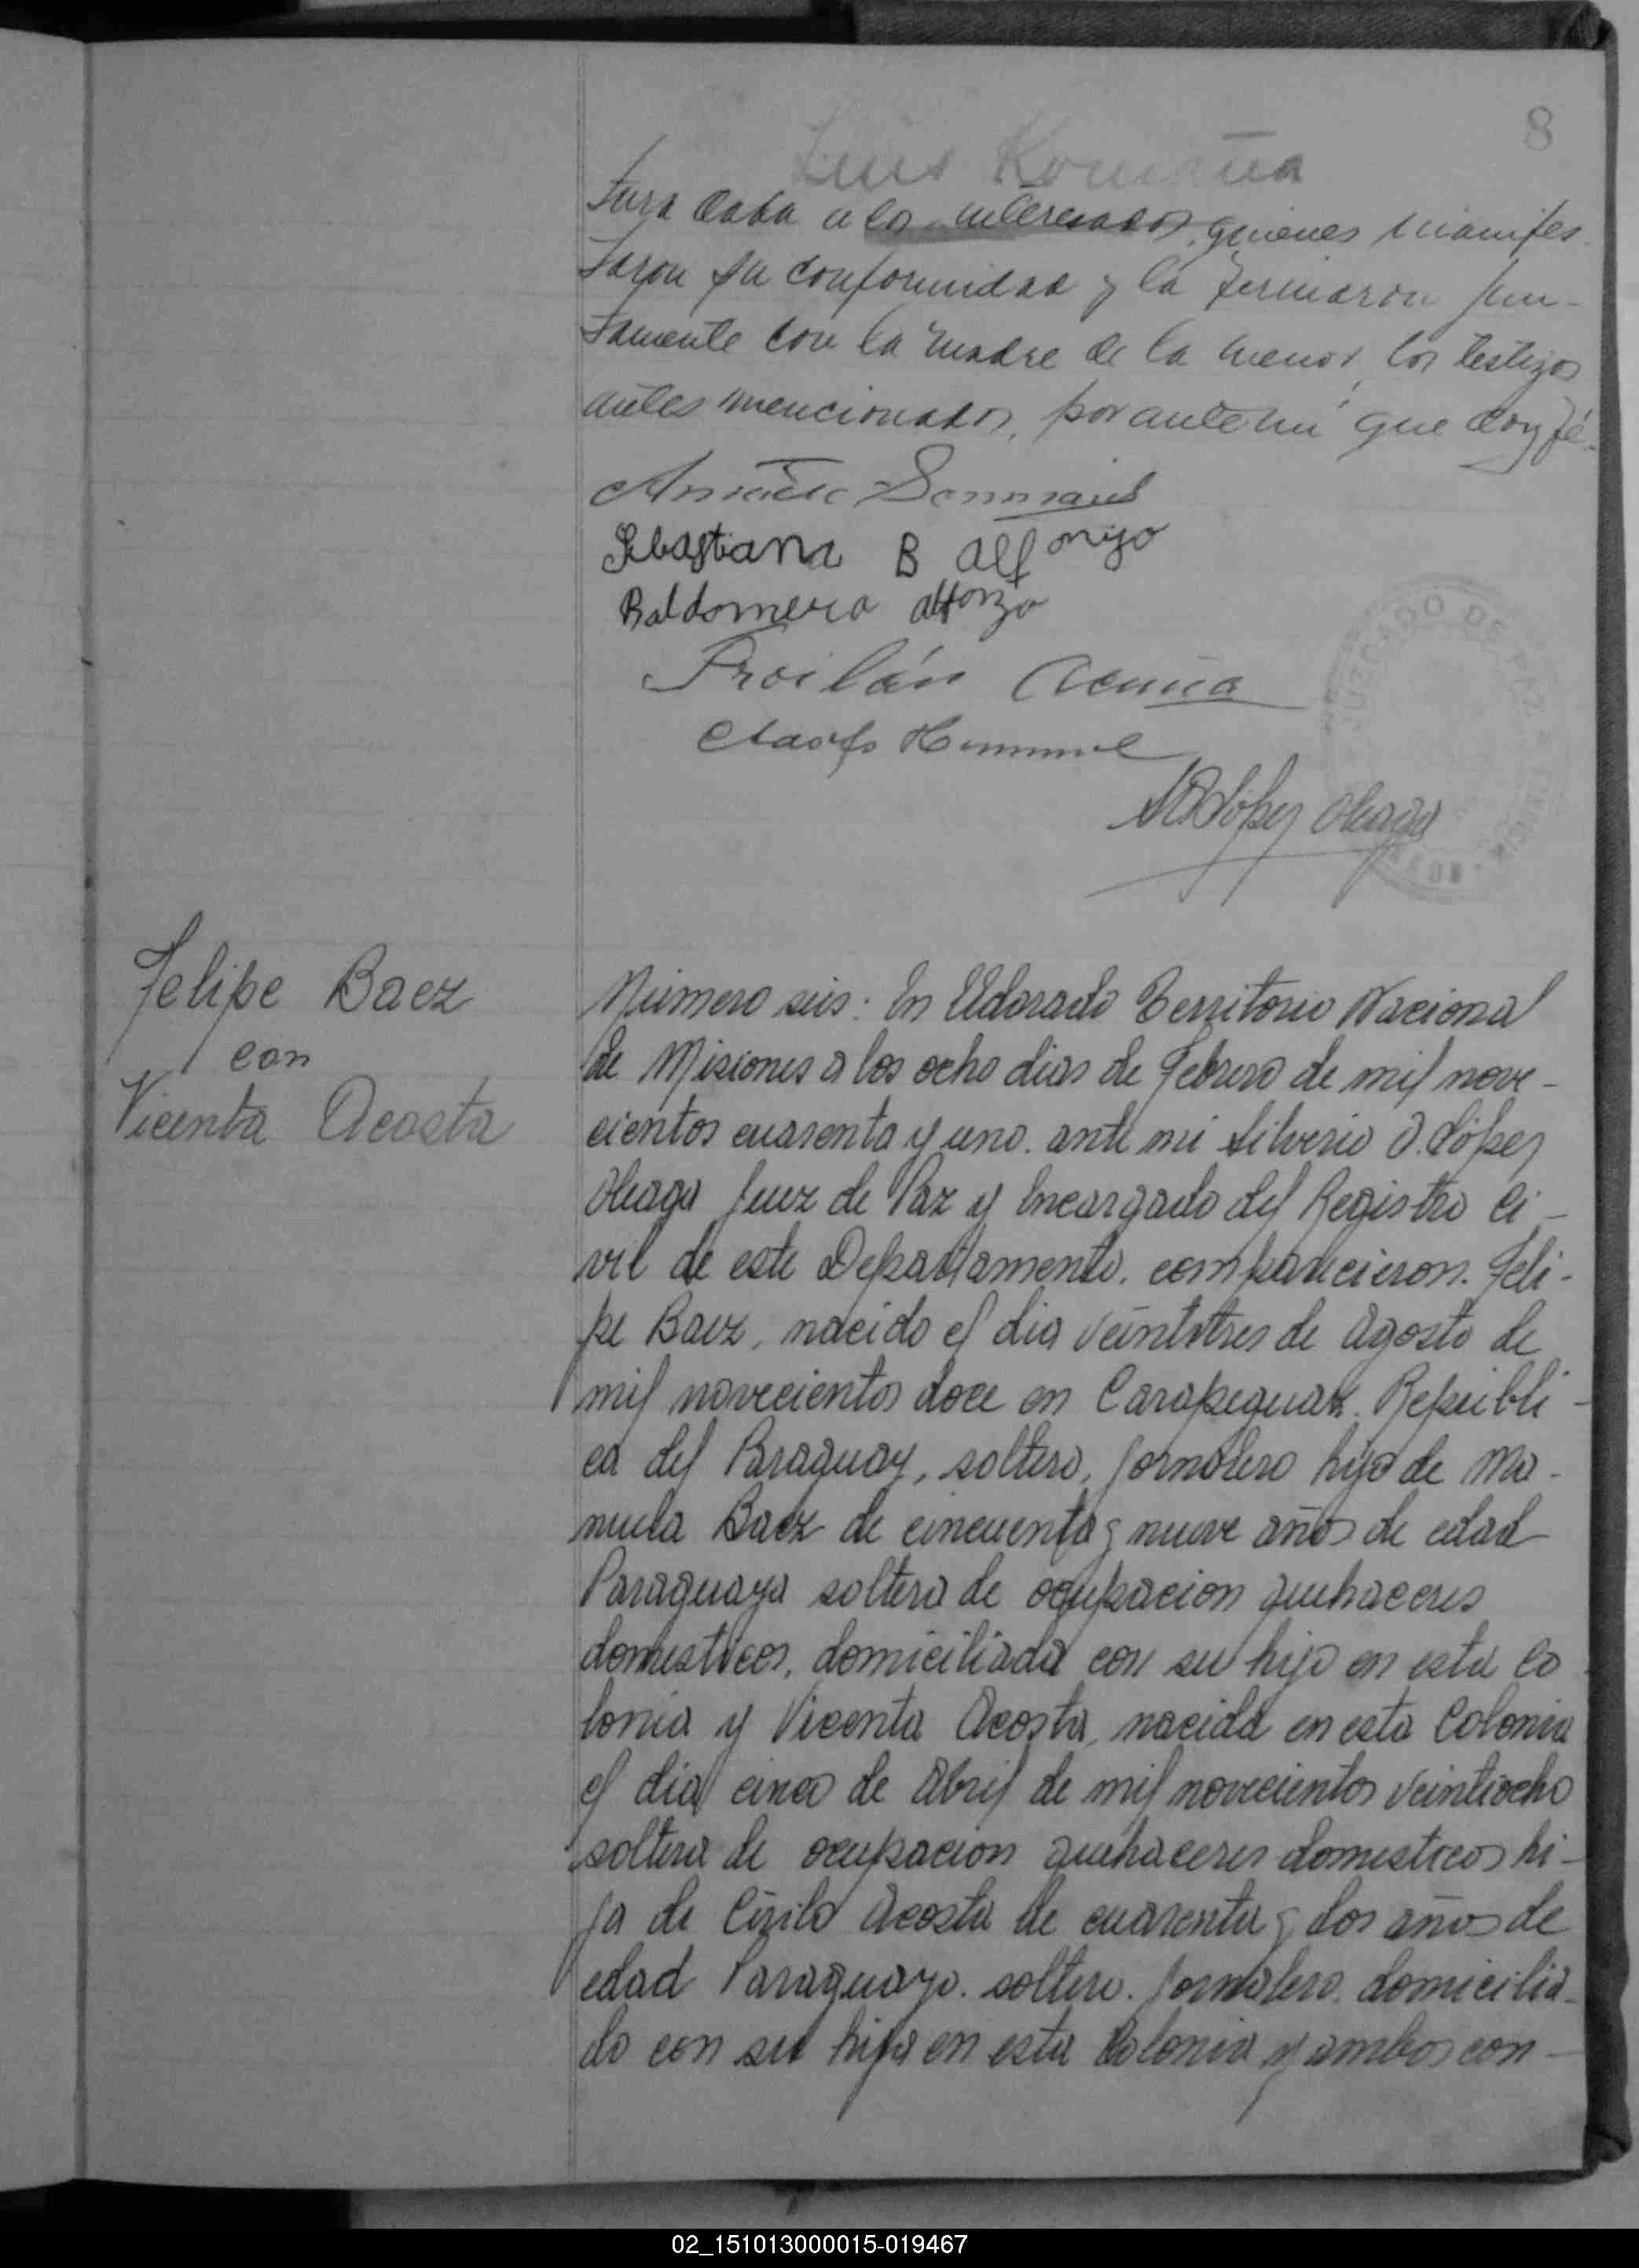 8
Luis Romaña
tura dada a los interesados, quienes manifes-
taron su conformidad y la firmaron jun-
tamente con la madre de la menor, los testigos
antes mencionados, por ante mi que doy fé.
Sebastiana B Alfonso
Baldomera alfonzo
Froilán Acuña
Adolfo Hummel
López Oleaga
JUZGADO DE PAZ
Felipe Baez
con
Vicenta Acosta
Número seis: En Eldorado Territorio Nacional
de Misiones a los ocho dias de Febrero de mil nove-
cientos cuarenta y uno. ante mi Silverio López
Oleaga Juez de Paz y Encargado del Registro Ci-
vil de este Departamento. comparecieron. Feli-
pe Baez, nacido el dia veintitres de Agosto de
mil novecientos doce en Carapeguay. Republi-
ca del Paraguay, soltero, jornalero hijo de Ma-
nuela Baez de cincuenta y nueve años de edad
Paraguaya soltera de ocupacion quehaceres
domesticos, domiciliada con su hijo en esta Co
lonia y Vicenta Acosta, nacida en esta Colonia
el dia cinco de Abril de mil novecientos veintiocho
soltera de ocupacion quehaceres domesticos hi-
ja de Cirilo Acosta de cuarenta y dos años de
edad Paraguayo. soltero. jornalero. domicilia-
do con su hija en esta Colonia y ambos con-
02_151013000015-019467